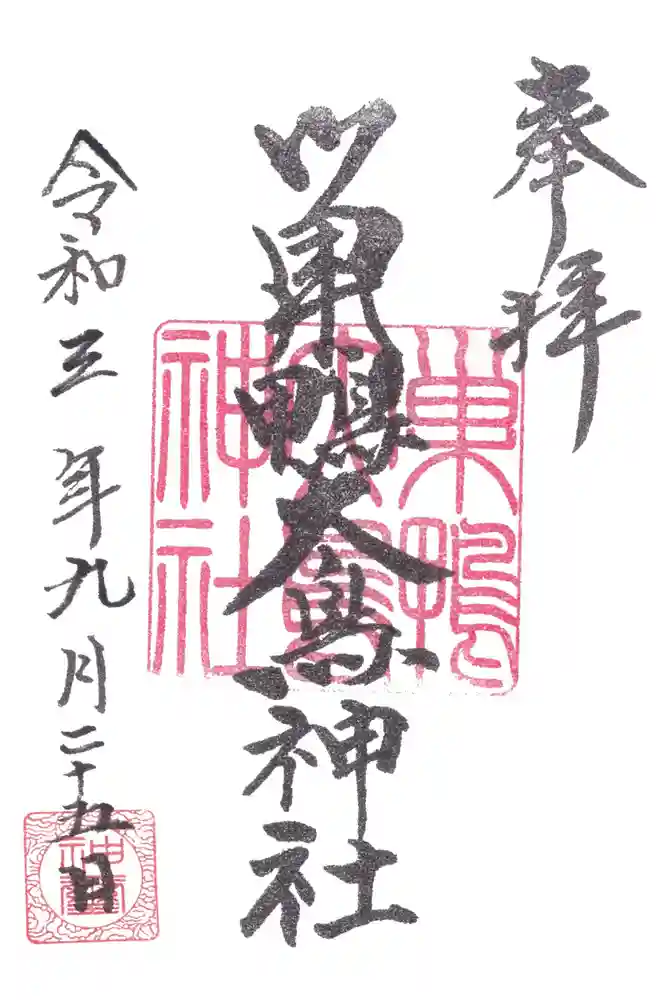 奉拝
巣鴨大鳥神社
令和三年九月二十五日
巣鴨
大鳥
神社